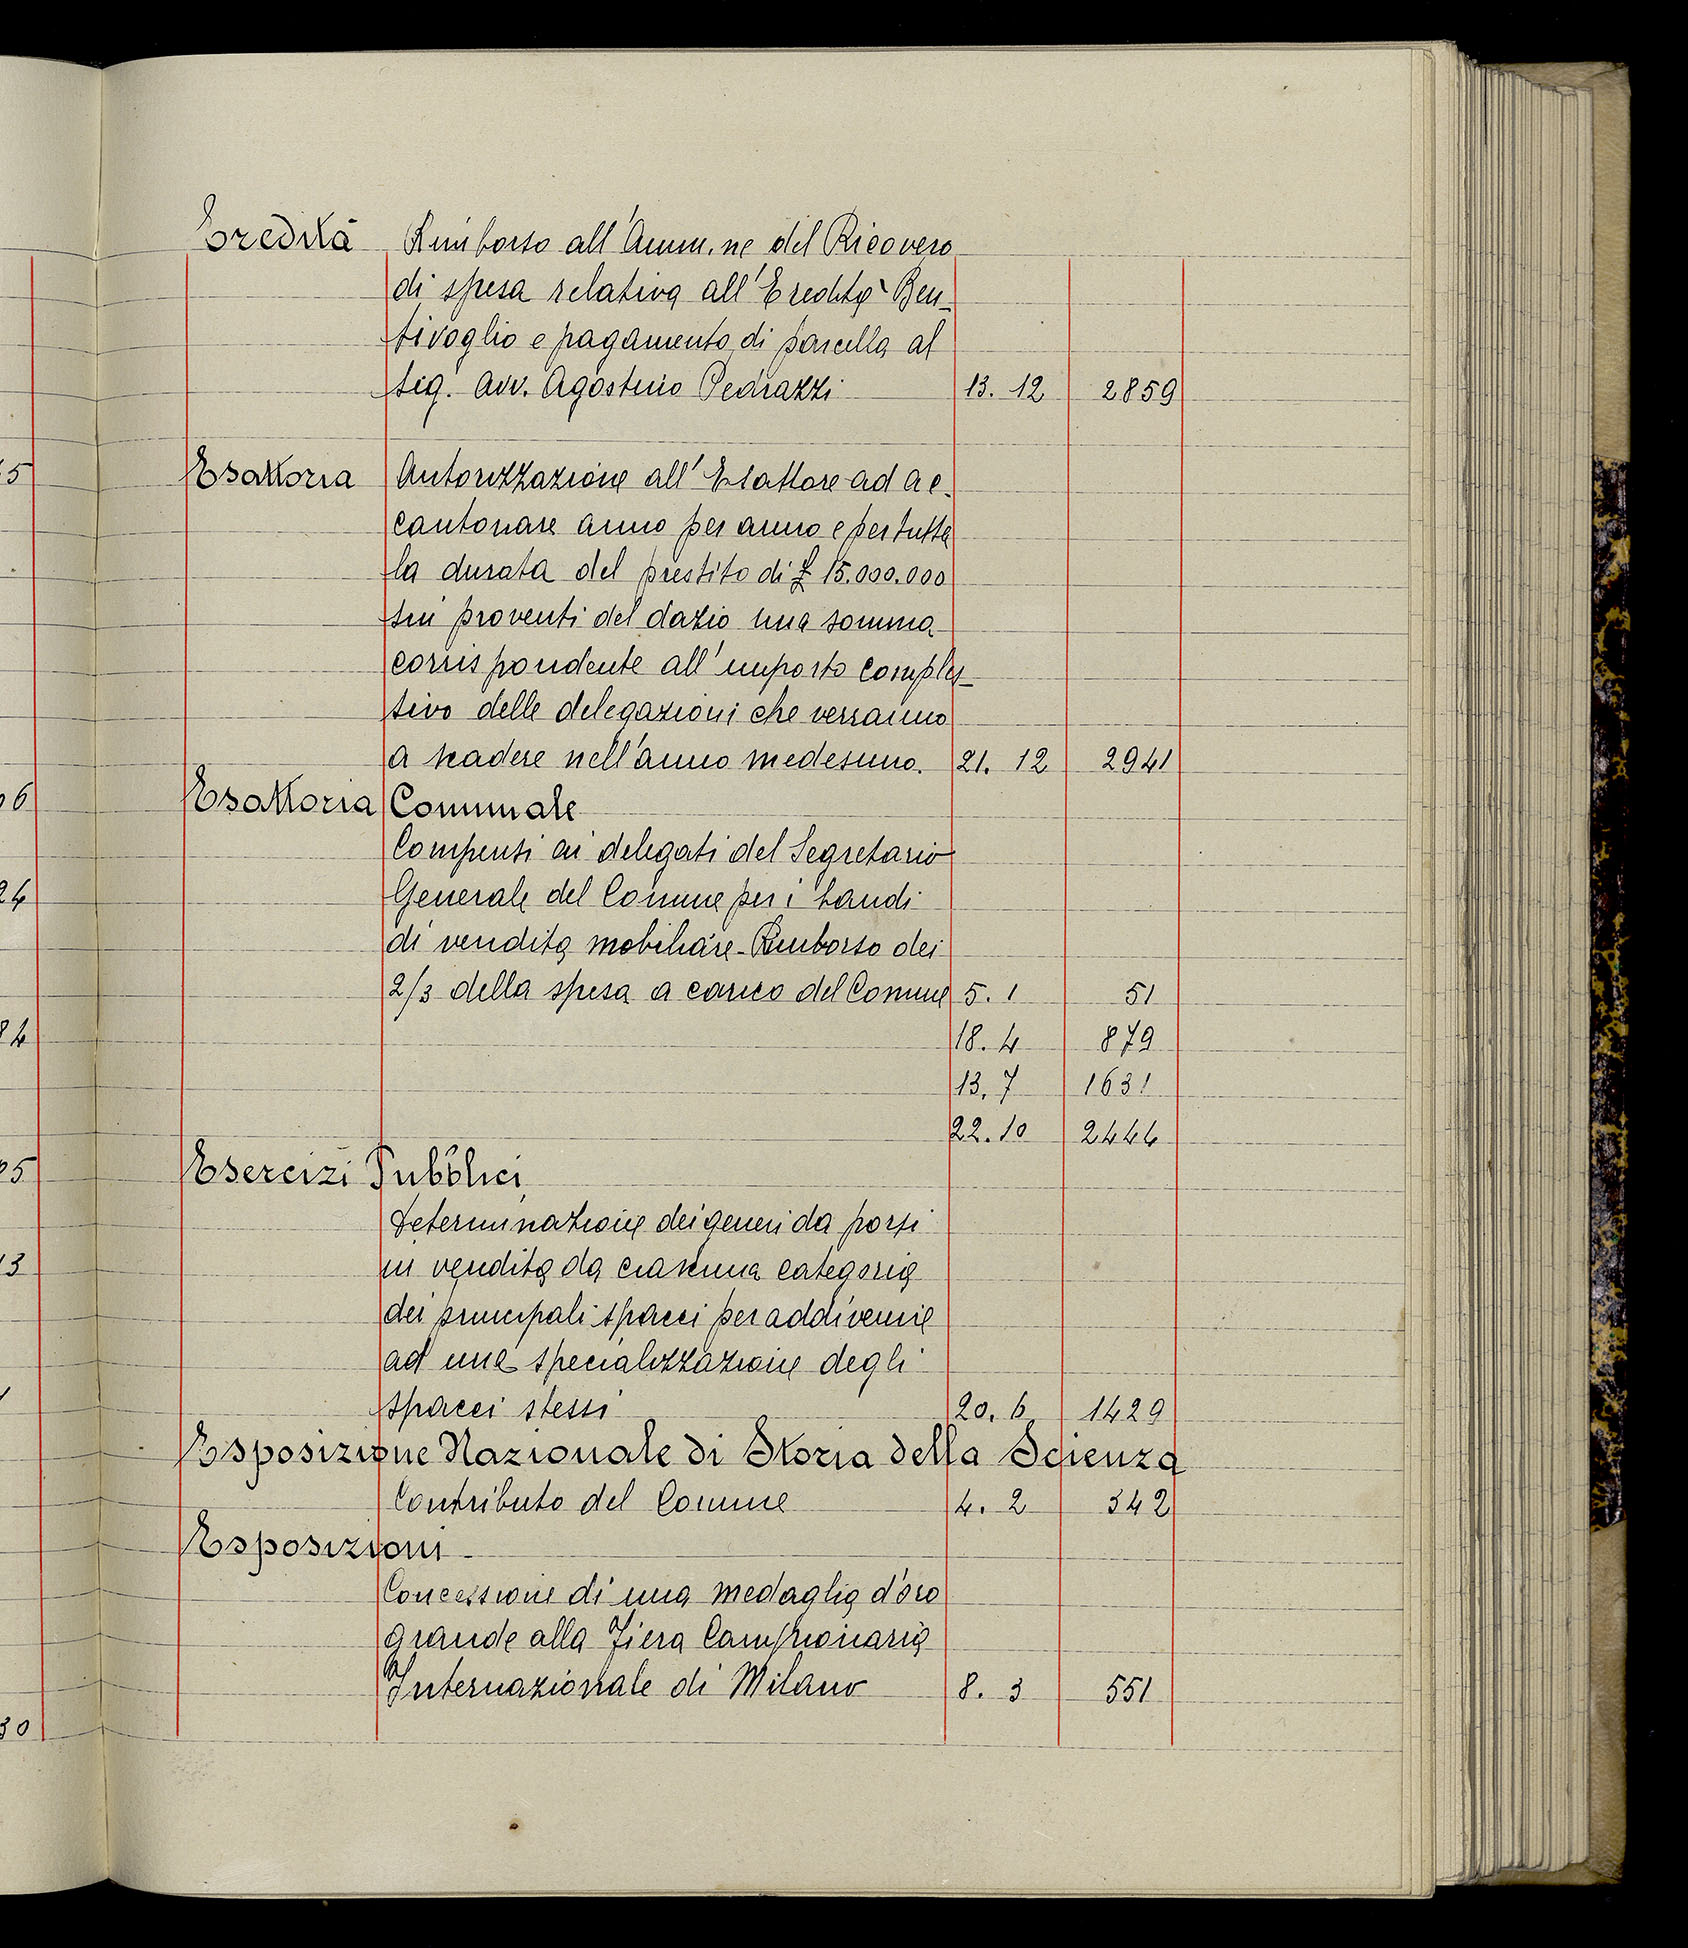 Eredità Rimborso all'Amm.ne del Ricovero
di spesa relativa all'Eredità Ben-
tivoglio e pagamento di parcella al
sig. avv. Agostino Pedrazzi 13. 12 2859
Esattoria Autorizzazione all'Esattore ad ac-
cantonare anno per anno e per tutta
la durata del prestito di £ 15.000.000
sui proventi del dazio una somma
corrispondente all'importo comples-
sivo delle delegazioni che verranno
a scadere nell'anno medesimo. 21. 12 2941
Esattoria Comunale
Compensi ai delegati del Segretario
Generale del Comune per i bandi
di vendita mobiliare - Rimborso dei
2/3 della spesa a carico del Comune 5. 1 51
18. 4 879
13. 7 1631
22. 10 2444
Esercizi Pubblici
Determinazione dei generi da porsi
in vendita da ciascuna categoria
dei principali spacci per addivenire
ad una specializzazione degli
spacci stessi 20. 6 1429
Esposizione Nazionale di Storia della Scienza
Contributo del Comune 4. 2 342
Esposizioni
Concessione di una medaglia d'oro
grande alla Fiera Campionaria
Internazionale di Milano 8. 3 551